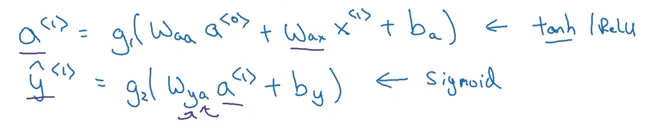 a^<1> = g₁(W_aa a^<0> + W_ax x^<1> + b_a) ← tanh / ReLU
ŷ^<1> = g₂(W_ya a^<1> + b_y) ← sigmoid